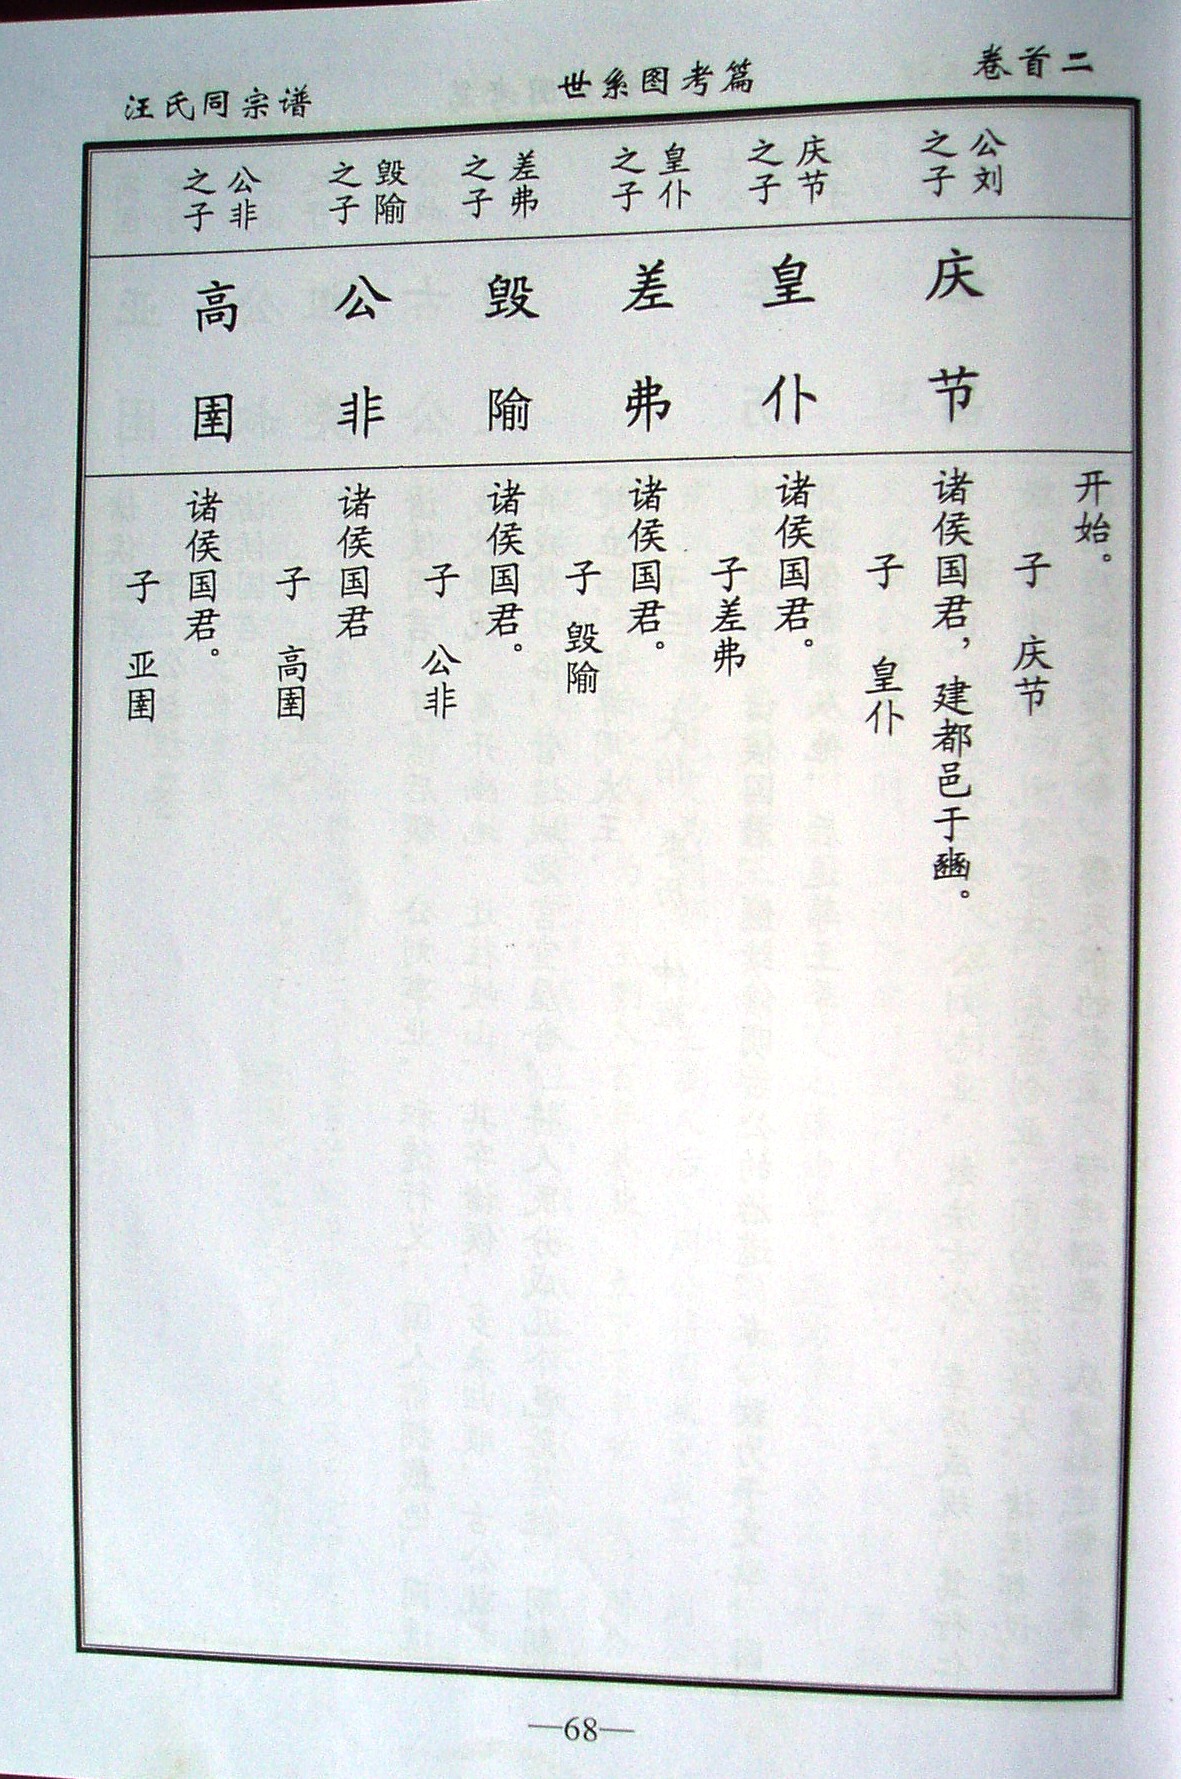 卷首二
世系图考篇
汪氏同宗谱
公刘
之子
庆节
之子
皇仆
之子
差弗
之子
毁隃
之子
公非
之子
庆节
皇仆
差弗
毁隃
公非
高圉
开始。
子 庆节
诸侯国君，建都邑于豳。
子 皇仆
诸侯国君。
子差弗
诸侯国君。
子 毁隃
诸侯国君。
子 公非
诸侯国君
子 高圉
诸侯国君。
子 亚圉
—68—